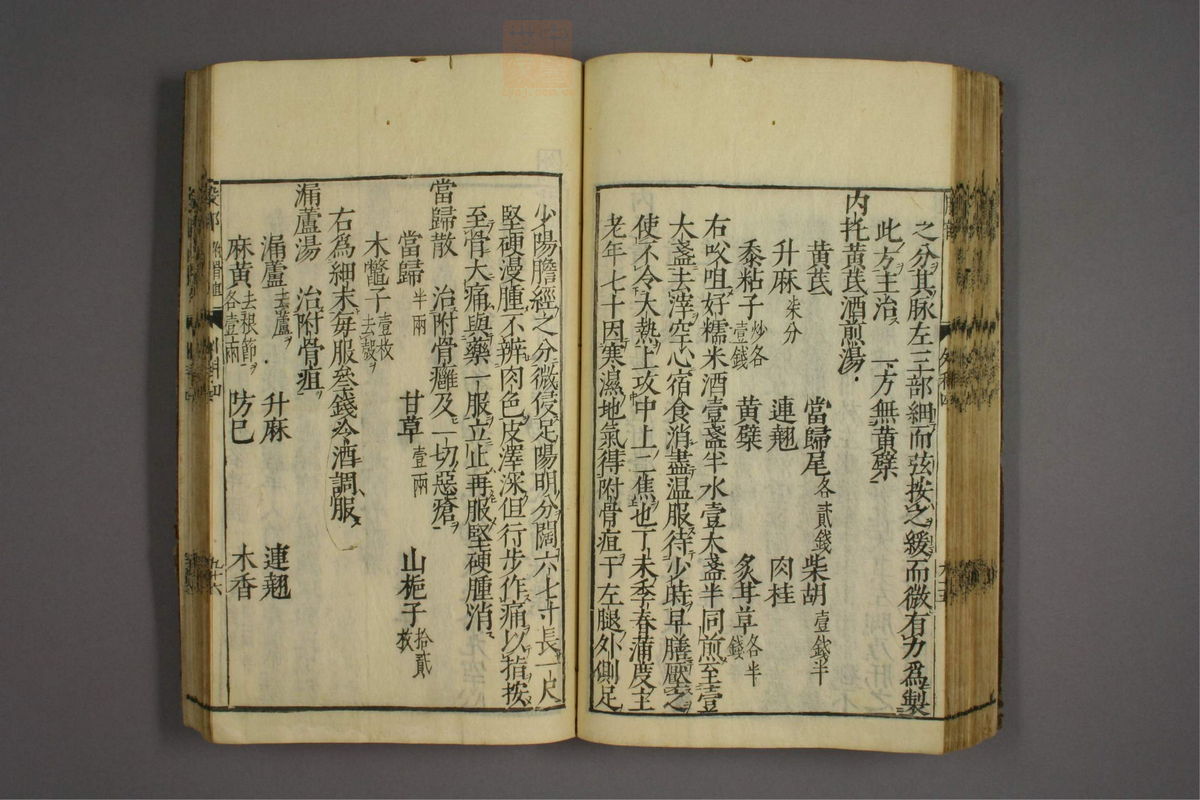 之分其脉左三部細而弦按之緩而微有力爲製
此方主治 一方無黃檗
內托黃芪酒煎湯
黃芪 當歸尾各貳錢 柴胡壹錢半
升麻柒分 連翹 肉桂
黍粘子炒各壹錢 黃檗 炙甘草各半錢
右㕮咀好糯米酒壹盞半水壹大盞半同煎至壹
大盞去滓空心宿食消盡温服待少時早膳壓之
使不令大熱上攻中上二焦也丁未季春蒲度主
老年七十因寒濕地氣得附骨疽于左腿外側足
少陽膽經之分微侵足陽明分闊六七寸長一尺
堅硬漫腫不辨肉色皮澤深但行步作痛以指按
至骨大痛與藥一服立止再服堅硬腫消
當歸散 治附骨癰及一切惡瘡
當歸半兩 甘草壹兩 山梔子拾貳枚
木鼈子壹枚去殼
右爲細末每服叄錢冷酒調服
漏蘆湯 治附骨疽
漏蘆去蘆 升麻 連翹
麻黃去根節各壹兩 防己 木香
九十六